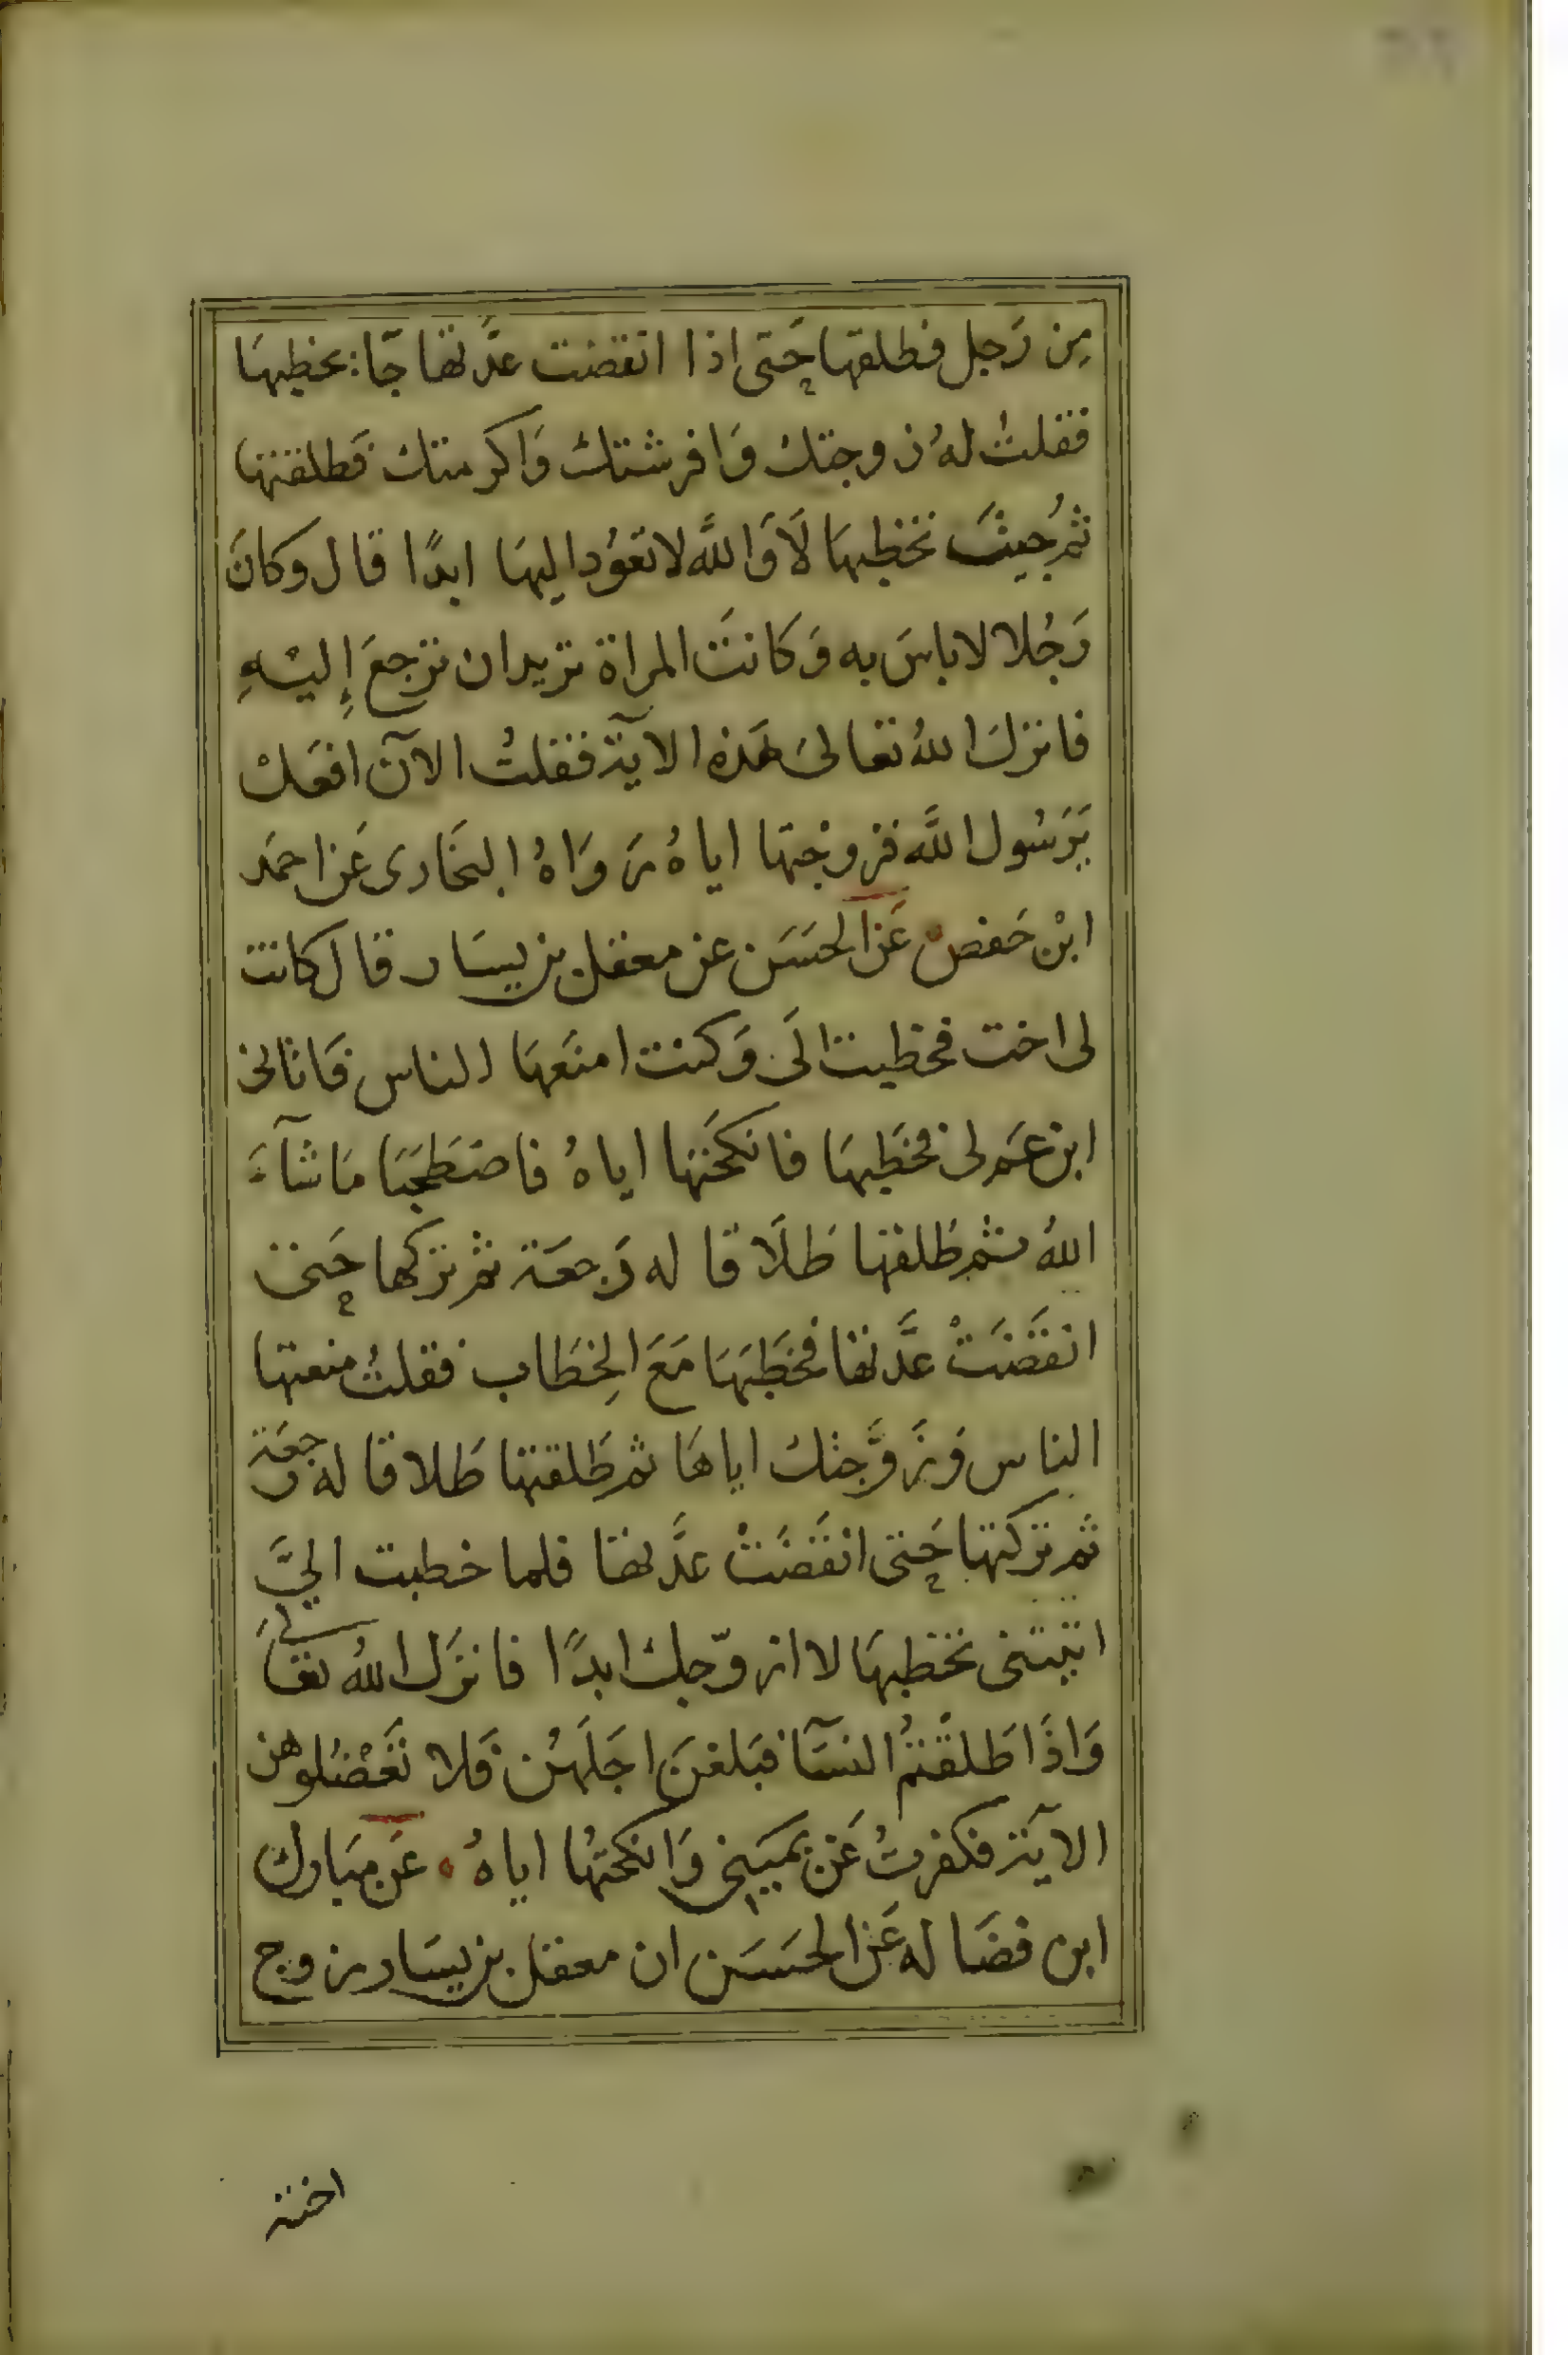 مِن رَجل فطلقها حَتى اذا انقضت عدَّتها جَا يخطبهَا
فقلتُ لهُ زوجتك وَافرشتك وَاكرمتك فَطلقتها
ثمُ جيتَ تخطبهَا لَا وَاللّه لا تعوُد اليهَا ابدًا قال وكانَ
رَجُلا لا باسَ به وَكانتَ المراة تريد ان ترجعَ إِليْهِ
فانزلَ اللهُ تعالىَ هَذه الآية فقلتُ الآن افعَلْ
يَرَسُول اللّه فزوجْتها اياهُ رَوَاهُ البخَارى عَن احمَد
ابْن حَفص عَن الحَسَن عن معقل بن يسَار قال كانت
لى اخت فخطبت الَى وَكنت امنَعهَا الناس فَاتانى
ابن عَم لى فخَطبهَا فانكحَتها اياهُ فاصطَحَبَا مَا شآءَ
اللهُ ثم طَلقها طَلَاقا له رَجعَة ثم تركها حَتى
انقَضَتْ عدَّتها فخَطَبَهَا مَعَ الخِطَاب فقلتُ منعتها
الناس وَزَوَّجتكَ اياهَا ثم طَلقتها طَلاقا له رجعَة
ثَم تركتها حَتى انقَضَتْ عدَّتها فلما خطبت اليَّ
اتيتنى تخطبهَا لا ازوّجك ابدًا فانزَل اللهُ تعَالى
وَاذَا طَلقْتمُ النسَآ فبَلغنَ اجَلَهُن فَلا تَعْضُلوهن
الآيَة فكفرتُ عَن يميَنِى وَانكحتهُا اياهُ عَن مبَارك
ابن فضَاله عَن الحسَن ان معقل بن يسَار زوج
اخته